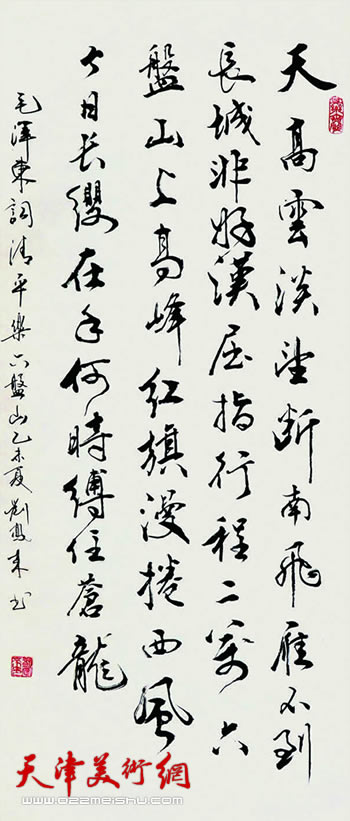 天高雲淡望断南飛雁不到
長城非好漢屈指行程二萬六
盤山上高峰红旗漫捲西風
今日长纓在手何時縛住蒼龍
毛澤東詞清平樂六盤山乙未夏劉來书
天津美術網
www.022meishu.com